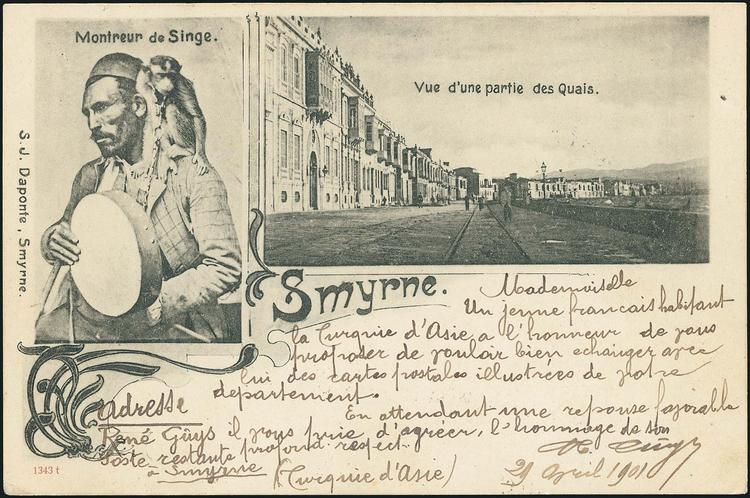 Montreur de Singe.
Vue d'une partie des Quais.
S. J. Daponte, Smyrne.
Smyrne.
Mademoiselle
Un jeune francais habitant
la Turquie d'Asie a l'honneur de vous
proposer de vouloir bien echanger avec
lui des cartes postales illustrees de votre
departement.
En attendant une reponse favorable
il vous prie d'agréer, l'hommage de son
profond respect.
adresse
René Guys
Poste restante
à Smyrne
(Turquie d'Asie)
29 April 1901
1343 t